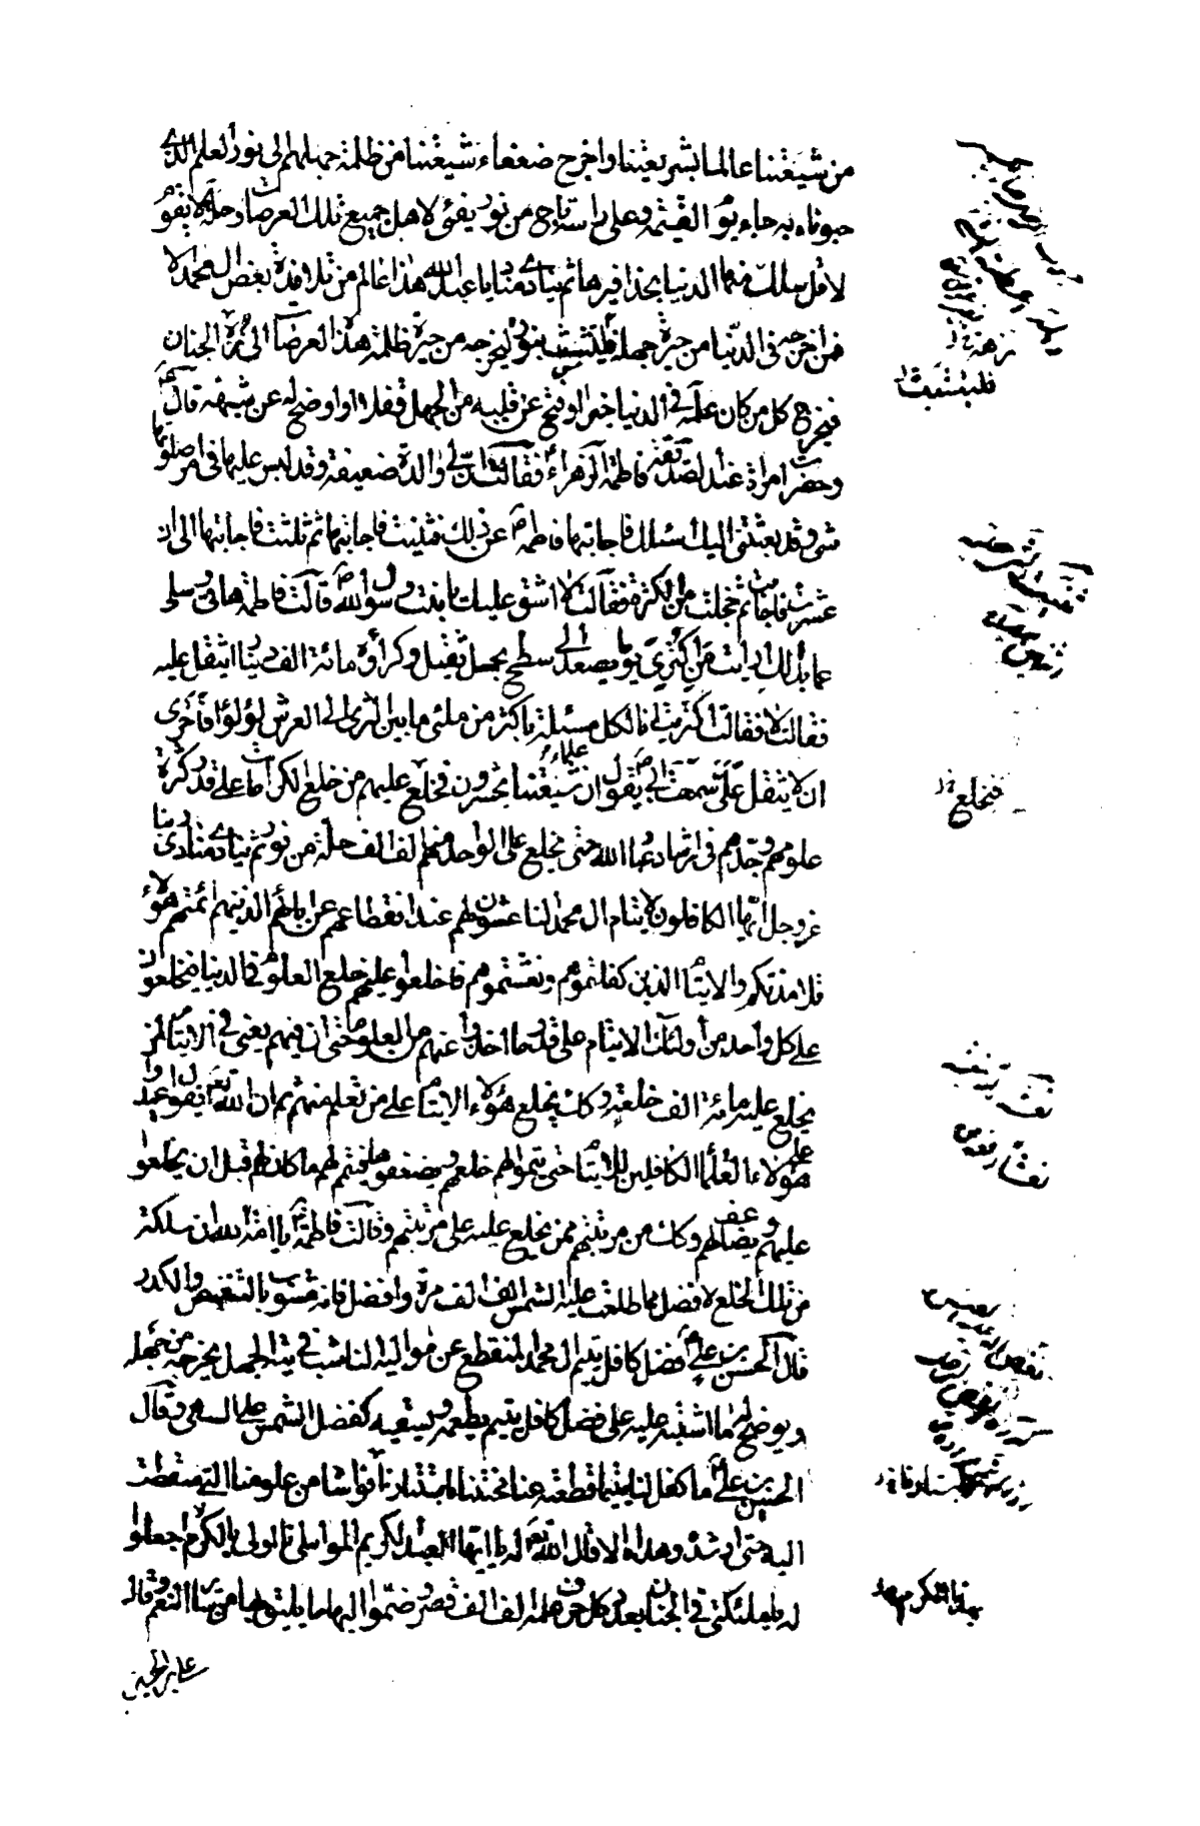 من شيعتنا عالما بشريعتنا واخرج ضعفاء شيعتنا من ظلمة جهلهم الى نور العلم الذي
حبوناه به جاء يوم القيمة وعلى راسه تاج من نور يضئ لاهل جميع تلك العرصات وحلة لا يقوم
لاقل سلك منها الدنيا بحذافيرها ثم ينادي مناد يا عباد الله هذا عالم من تلامذة بعض ال محمد الا
فمن اخرجه في الدنيا من حيرة جهله فليتشبث بنوره ليخرجه من حيرة ظلمة هذه العرصات الى نزه الجنان
فيخرج كل من كان علمه في الدنيا خيرا او فتح عن قلبه من الجهل قفلا او اوضح له عن شبهة قال ع
وحضرت امراة عند الصديقة فاطمة الزهراء ع فقالت ان لي والدة ضعيفة وقد لبس عليها في امر صلوتها
شئ وقد بعثتني اليك اسئلك فاجابتها فاطمة ع عن ذلك فثنيت فاجابتها ثم ثلثت فاجابتها الى ان
عشرت فاجابت ثم خجلت من الكثرة فقالت لا اشق عليك يا بنت رسول الله ص قالت فاطمة هاتي وسلي
عما بدا لك ارايت من اكتري يوما يصعد الى سطح بحمل ثقيل وكراؤه مائة الف دينار ايثقل عليه
فقالت لا فقالت اكتريت انا لكل مسئلة باكثر من ملئ ما بين الثرى الى العرش لؤلؤا فاحرى
ان لا يثقل على سمعت ابي ص يقول ان علماء شيعتنا يحشرون فيخلع عليهم من خلع الكرامات على قدر كثرة
علومهم وجدهم في ارشاد عباد الله حتى يخلع على الواحد منهم الف الف حلة من نور ثم ينادي منادي ربنا
عز وجل ايها الكافلون لايتام ال محمد الناعشون لهم عند انقطاعهم عن ابائهم الذين هم ائمتهم هؤلاء
تلامذتكم والايتام الذين كفلتموهم ونعشتموهم فاخلعوا عليهم خلع العلوم في الدنيا فيخلعون
على كل واحد من اولئك الايتام على قدر ما اخذوا عنهم من العلوم حتى ان فيهم يعني في الايتام لمن
يخلع عليه مائة الف خلعة وكذلك يخلع هؤلاء الايتام على من تعلم منهم ثم ان الله تع يقول اعيدوا
على هؤلاء العلماء الكافلين للايتام حتى تتموا لهم خلعهم وتضعفوها فيتم لهم ما كان لهم قبل ان يخلعوا
عليهم ويضاعف لهم وكذلك من مرتبتهم ممن يخلع عليه على مرتبتهم وقالت فاطمة ع يا امة الله ان سلكة
من تلك الخلع لافضل مما طلعت عليه الشمس الف الف مرة وما فضل فانه مشوب بالتنغيص والكدر
قال الحسن بن علي ع فضل كافل يتيم ال محمد المنقطع عن مواليه الناشب في تيه الجهل يخرجه من جهله
ويوضح له ما اشتبه عليه على فضل كافل يتيم يطعمه ويسقيه كفضل الشمس على السهى وقال
الحسين بن علي ع ما كفل لنا يتيما قطعته عنا محنتنا باستتارنا فواساه من علومنا التي سقطت
اليه حتى ارشده وهداه الا قال الله تع له يا ايها العبد الكريم المواسي انا اولى بالكرم اجعلوا
له يا ملئكتي في الجنان بعدد كل حرف علمه الف الف قصر وضموا اليها ما يليق بها من سائر النعم وقال
على بن الحسين
فليتشبث
فيخلع